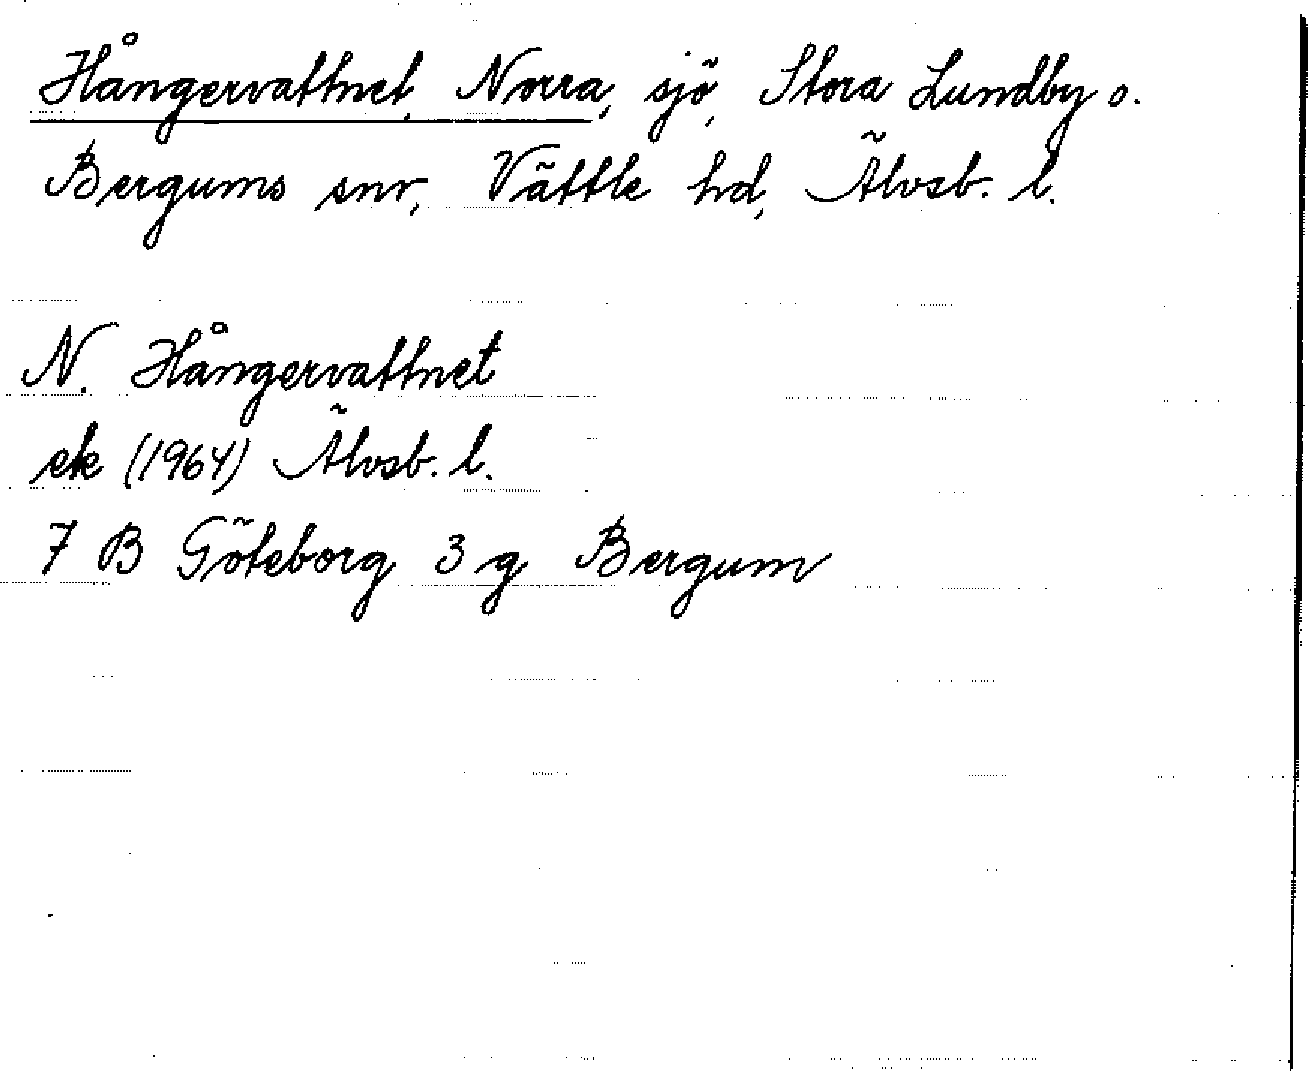 Hångervattnet, Norra, sjö, Stora Lundby o.
Bergums snr, Vättle hd, Älvsb. l.
N. Hångervattnet
ek (1964) Älvsb. l.
7 B Göteborg 3 g Bergum